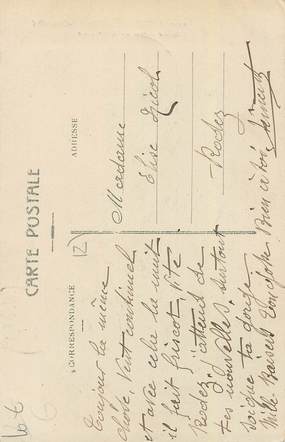 CARTE POSTALE
CORRESPONDANCE
ADRESSE
Toujours la même
chose, Vent continuel
et avec cela la nuit
il fait friscot, Vite
Rodez, j'attends de
tes nouvelles, surtout
soigne ta gorge
Mille Baisers Ton
Bien à toi
Madame
Elise
Rodez
6 €